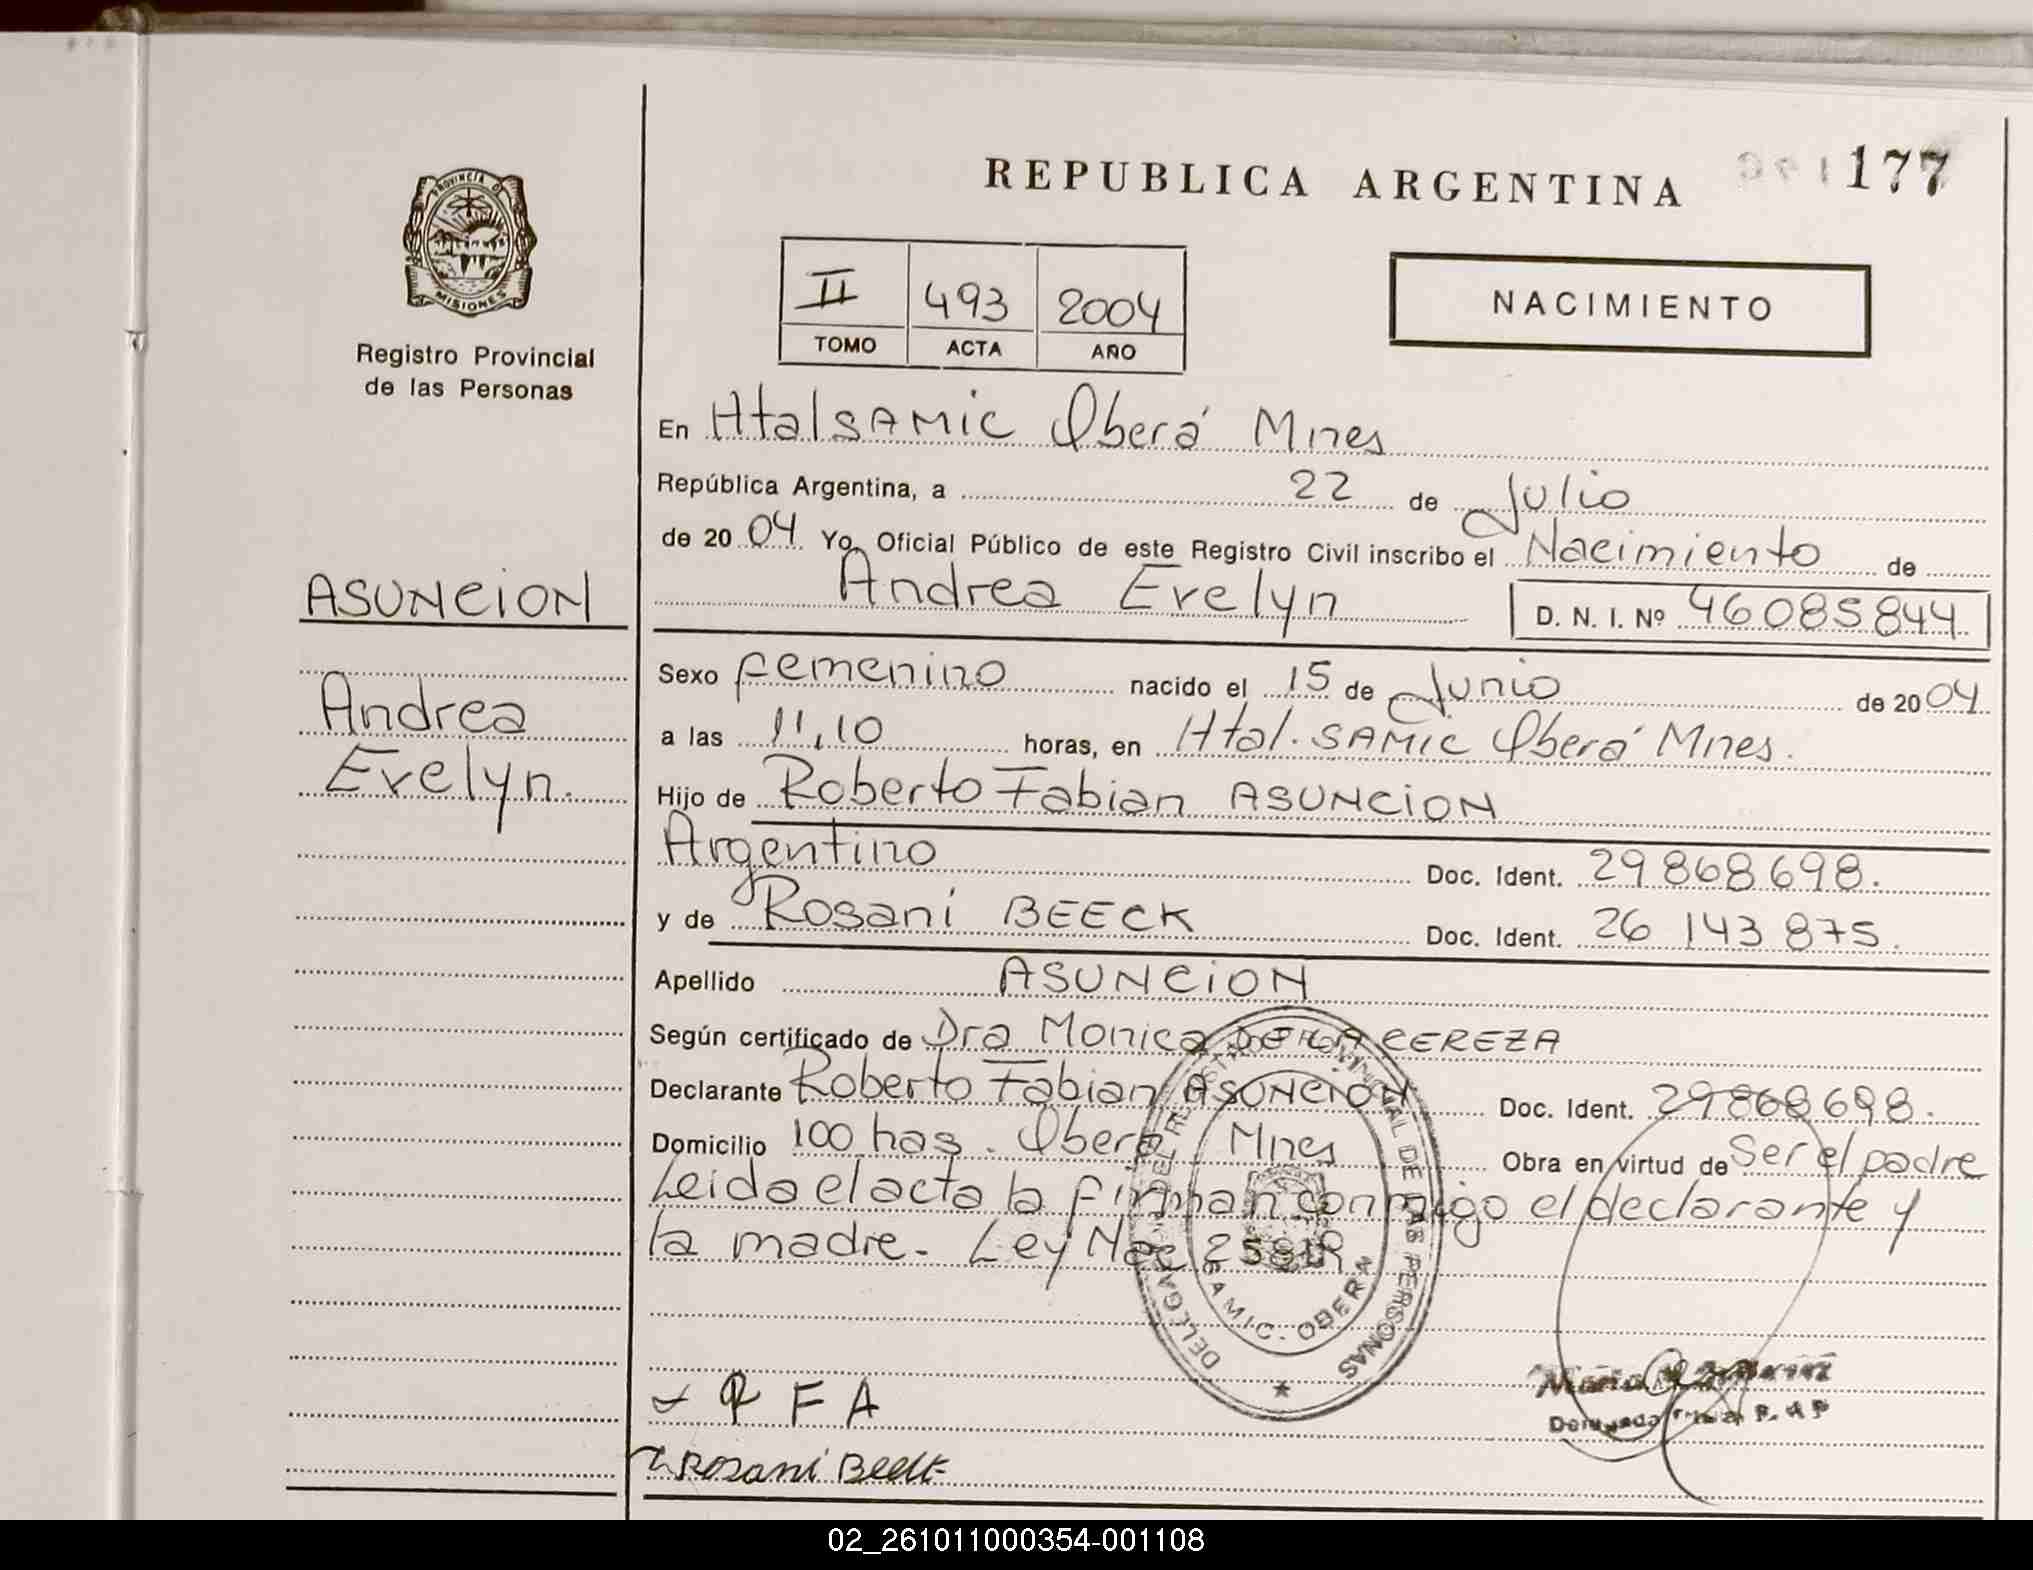 REPUBLICA ARGENTINA
177
PROVINCIA DE
MISIONES
Registro Provincial
de las Personas
II 493 2004
TOMO ACTA AÑO
NACIMIENTO
ASUNCION
Andrea
Evelyn.
En Htal SAMIC Oberá Mnes
República Argentina, a 22 de Julio
de 2004 Yo, Oficial Público de este Registro Civil inscribo el Nacimiento de
Andrea Evelyn D. N. I. Nº 46085844
Sexo femenino nacido el 15 de Junio de 2004
a las 11,10 horas, en Htal. SAMIC Oberá Mnes.
Hijo de Roberto Fabian ASUNCION
Argentino Doc. Ident. 29868698.
y de Rosani BEECK Doc. Ident. 26 143 875.
Apellido ASUNCION
Según certificado de Dra Monica DE LA CEREZA
Declarante Roberto Fabian ASUNCION Doc. Ident. 29868698.
Domicilio 100 has. Oberá Mnes Obra en virtud de Ser el padre
Leida el acta la firman conmigo el declarante y
la madre. Ley Nac
DELEGA DEL REGISTRO PROVINCIAL DE LAS PERSONAS
SAMIC. OBERA
R F A
Rosani Beeck
Maria
02_261011000354-001108